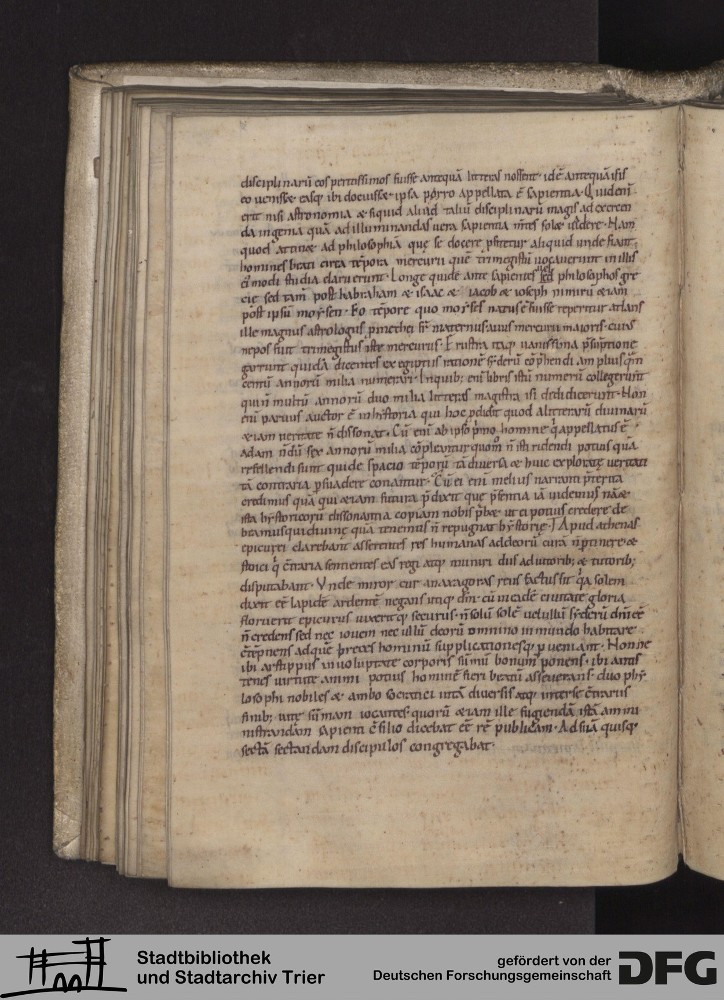 disciplinarũ eos peritissimos fuisse antequã litteras nossent · idẽ antequã isis
eo uenisset easq; ibi docuisset · ipsa porro appellata ẽ sapientia · Quidenĩ
erit nisi astronomia & siquid aliud taliũ disciplinarũ magis ad exercen
da ingenia quã ad illuminandas uera sapientia mtes solæ ualere · Nam
quod attinæ ad philosophiã que se docere pfitetur aliquid unde fiant
homines beati circa tẽpora mercurii quẽ trimegistũ uocauerunt in illis
ei modi studia claruerunt · Longe quidẽ ante sapientes uel philosophos gre
cie sed tam post habraham & isaac & iacob & ioseph nimirũ & iam
post ipsũ moysen · Eo tẽpore quo moyses natus ẽ fuisse reperitur atlans
ille magnus astrologus pmethei fr maternus auus mercurii maioris · cuius
nepos fuit trimegistus iste mercurius · Frustra itaq; uanissima psũptione
garriunt quidã dicentes ex egiptus rationẽ syderũ cõphendi am plus quã
centũ annorũ milia numerari · Inquib; enĩ libris istũ numerũ collegerunt
qui ñ multũ annorũ duo milia litteras magistra isi dedidicerunt · Non
enĩ paruus auctor ẽ in hystoria qui hoc pdidit quod a litterarũ diuinarũ
& iam ueritate ñ dissonat · Cũ enĩ ab ipso pmo homine q appellatus ẽ
adam ñdũ sex annorũ milia cõpleantur quom ñ isti ridendi potius quã
refellendi sunt qui de spacio tẽporũ tã diuersa & huic explorate ueritati
tã contraria psuadere conantur · Cui enĩ melius narranti pterita
credimus quã qui & iam futura pdixit que psentia iã uidemus nã &
ista hystoricorũ dissonantia copiam nobis pbet ut ei potius credere de
beamus qui diuine quã tenemus ñ repugnat hystorie · Apud athenas
epicurei clarebant asserentes res humanas ad deorũ curã ñ ptinere &
stoici q cõtraria sentientes eas regi atq; muniri diis adiutorib; & tutorib;
disputabant · Unde miror cur anaxagoras reus factus sit qa solem
dixit eẽ lapidẽ ardentẽ negans utiq; dm · cũ in eadẽ ciuitate gloria
floruerit epicurus uixeritq; securus · ñ solũ solẽ uel ullũ syderũ dm eẽ
ñ credens sed nec iouem nec ullũ deorũ omnino in mundo habitare
cõtẽpnens ad que preces hominũ supplicationesq; pueniant · Nonne
ibi aristippus in uoluptate corporis sũmũ bonum ponens · ibi antis
tenes uirtute animi potius hominẽ fieri beatũ asseuerans · duo phy
losophi nobiles & ambo socratici intã diuersis atq; inter se cõtrariis
finib; uite sũmam locantes quorũ & iam ille fugiendã istã ammi
nistrandam sapienti cẽ filio dicebat eẽ rẽ publicam · Ad suã quisq;
sectã sectandam discipulos congregabat ·
Stadtbibliothek
und Stadtarchiv Trier
gefördert von der
Deutschen Forschungsgemeinschaft
DFG